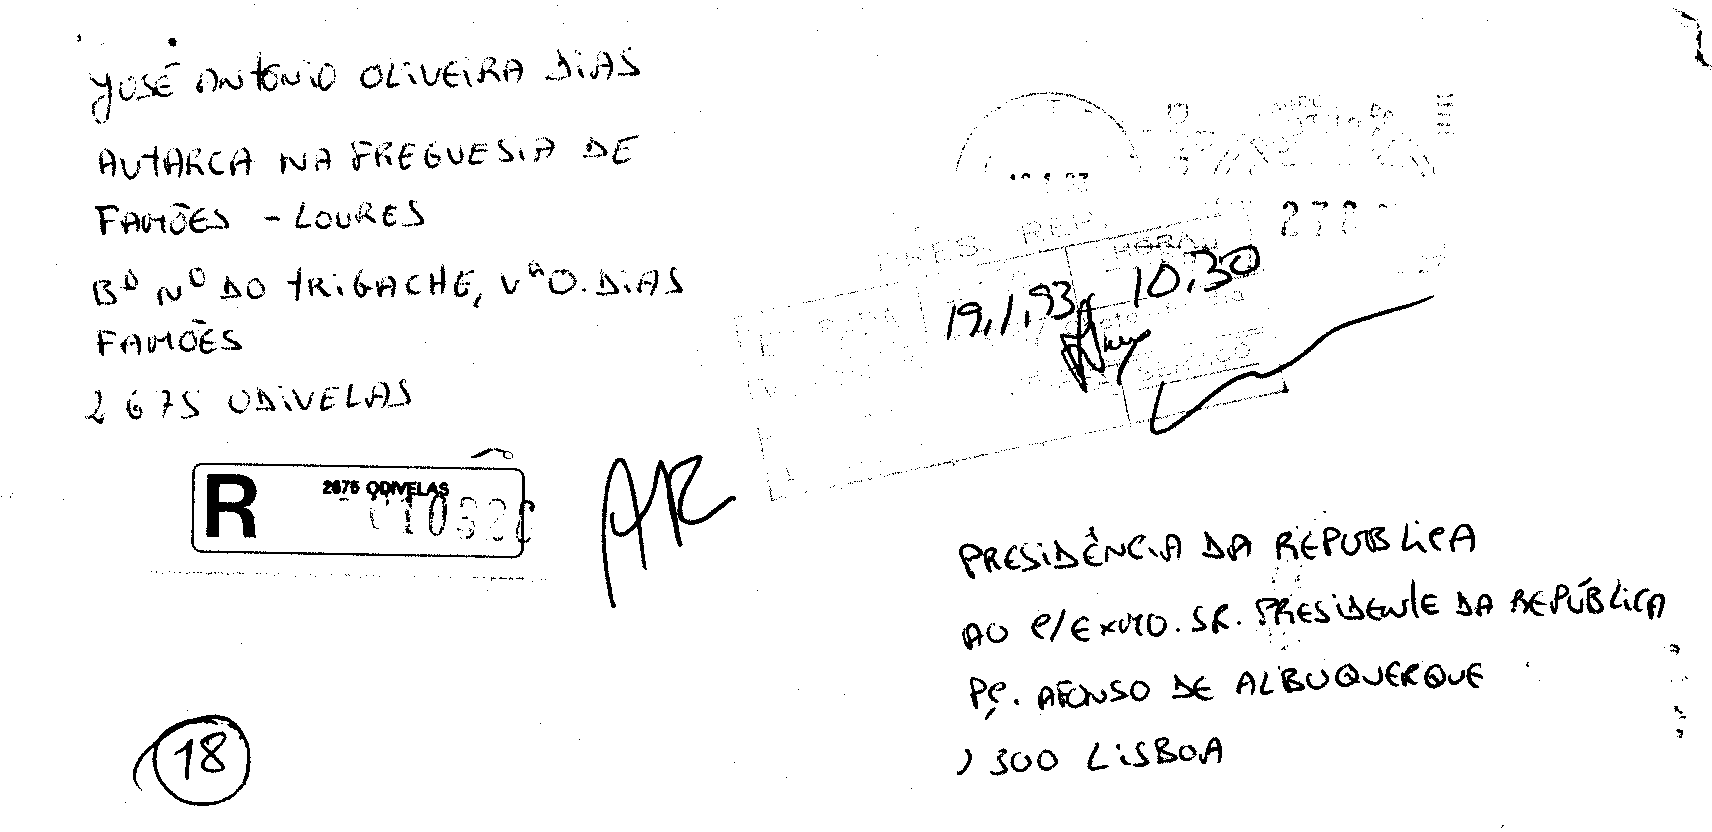 JOSÉ ANTÓNIO OLIVEIRA DIAS
AUTARCA NA FREGUESIA DE
FAMÕES - LOURES
Bº Nº DO TRIGACHE, VªO. DIAS
FAMÕES
2675 ODIVELAS
R
2675 ODIVELAS
AR
PRES. REP.
HORA
278
19,1,93
10.30
PRESIDÊNCIA DA REPUBLICA
AO C/EXMO. SR. PRESIDENTE DA REPÚBLICA
PÇ. AFONSO DE ALBUQUERQUE
1300 LISBOA
18